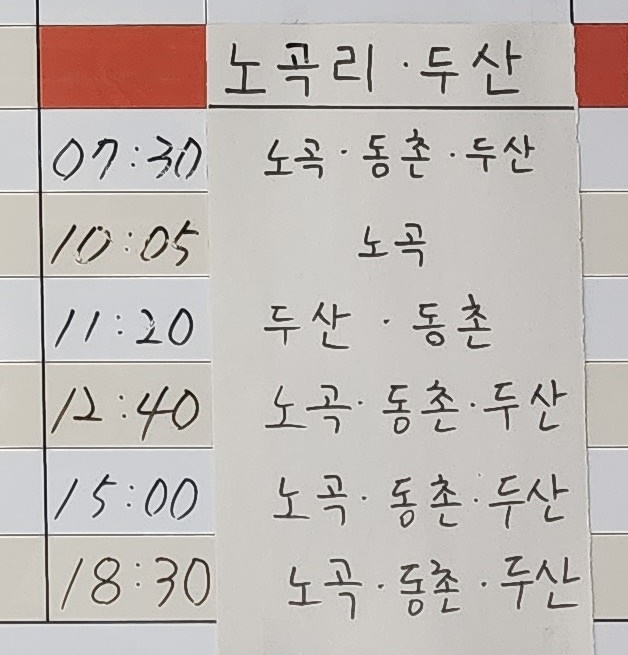 노곡리 · 두산
07:30 노곡 · 동촌 · 두산
10:05 노곡
11:20 두산 · 동촌
12:40 노곡 · 동촌 · 두산
15:00 노곡 · 동촌 · 두산
18:30 노곡 · 동촌 · 두산